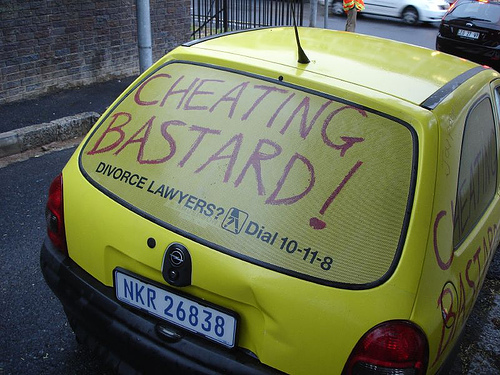 CHEATING
BASTARD!
DIVORCE LAWYERS? Dial 10-11-8
NKR 26838
CHEATING
BASTARD